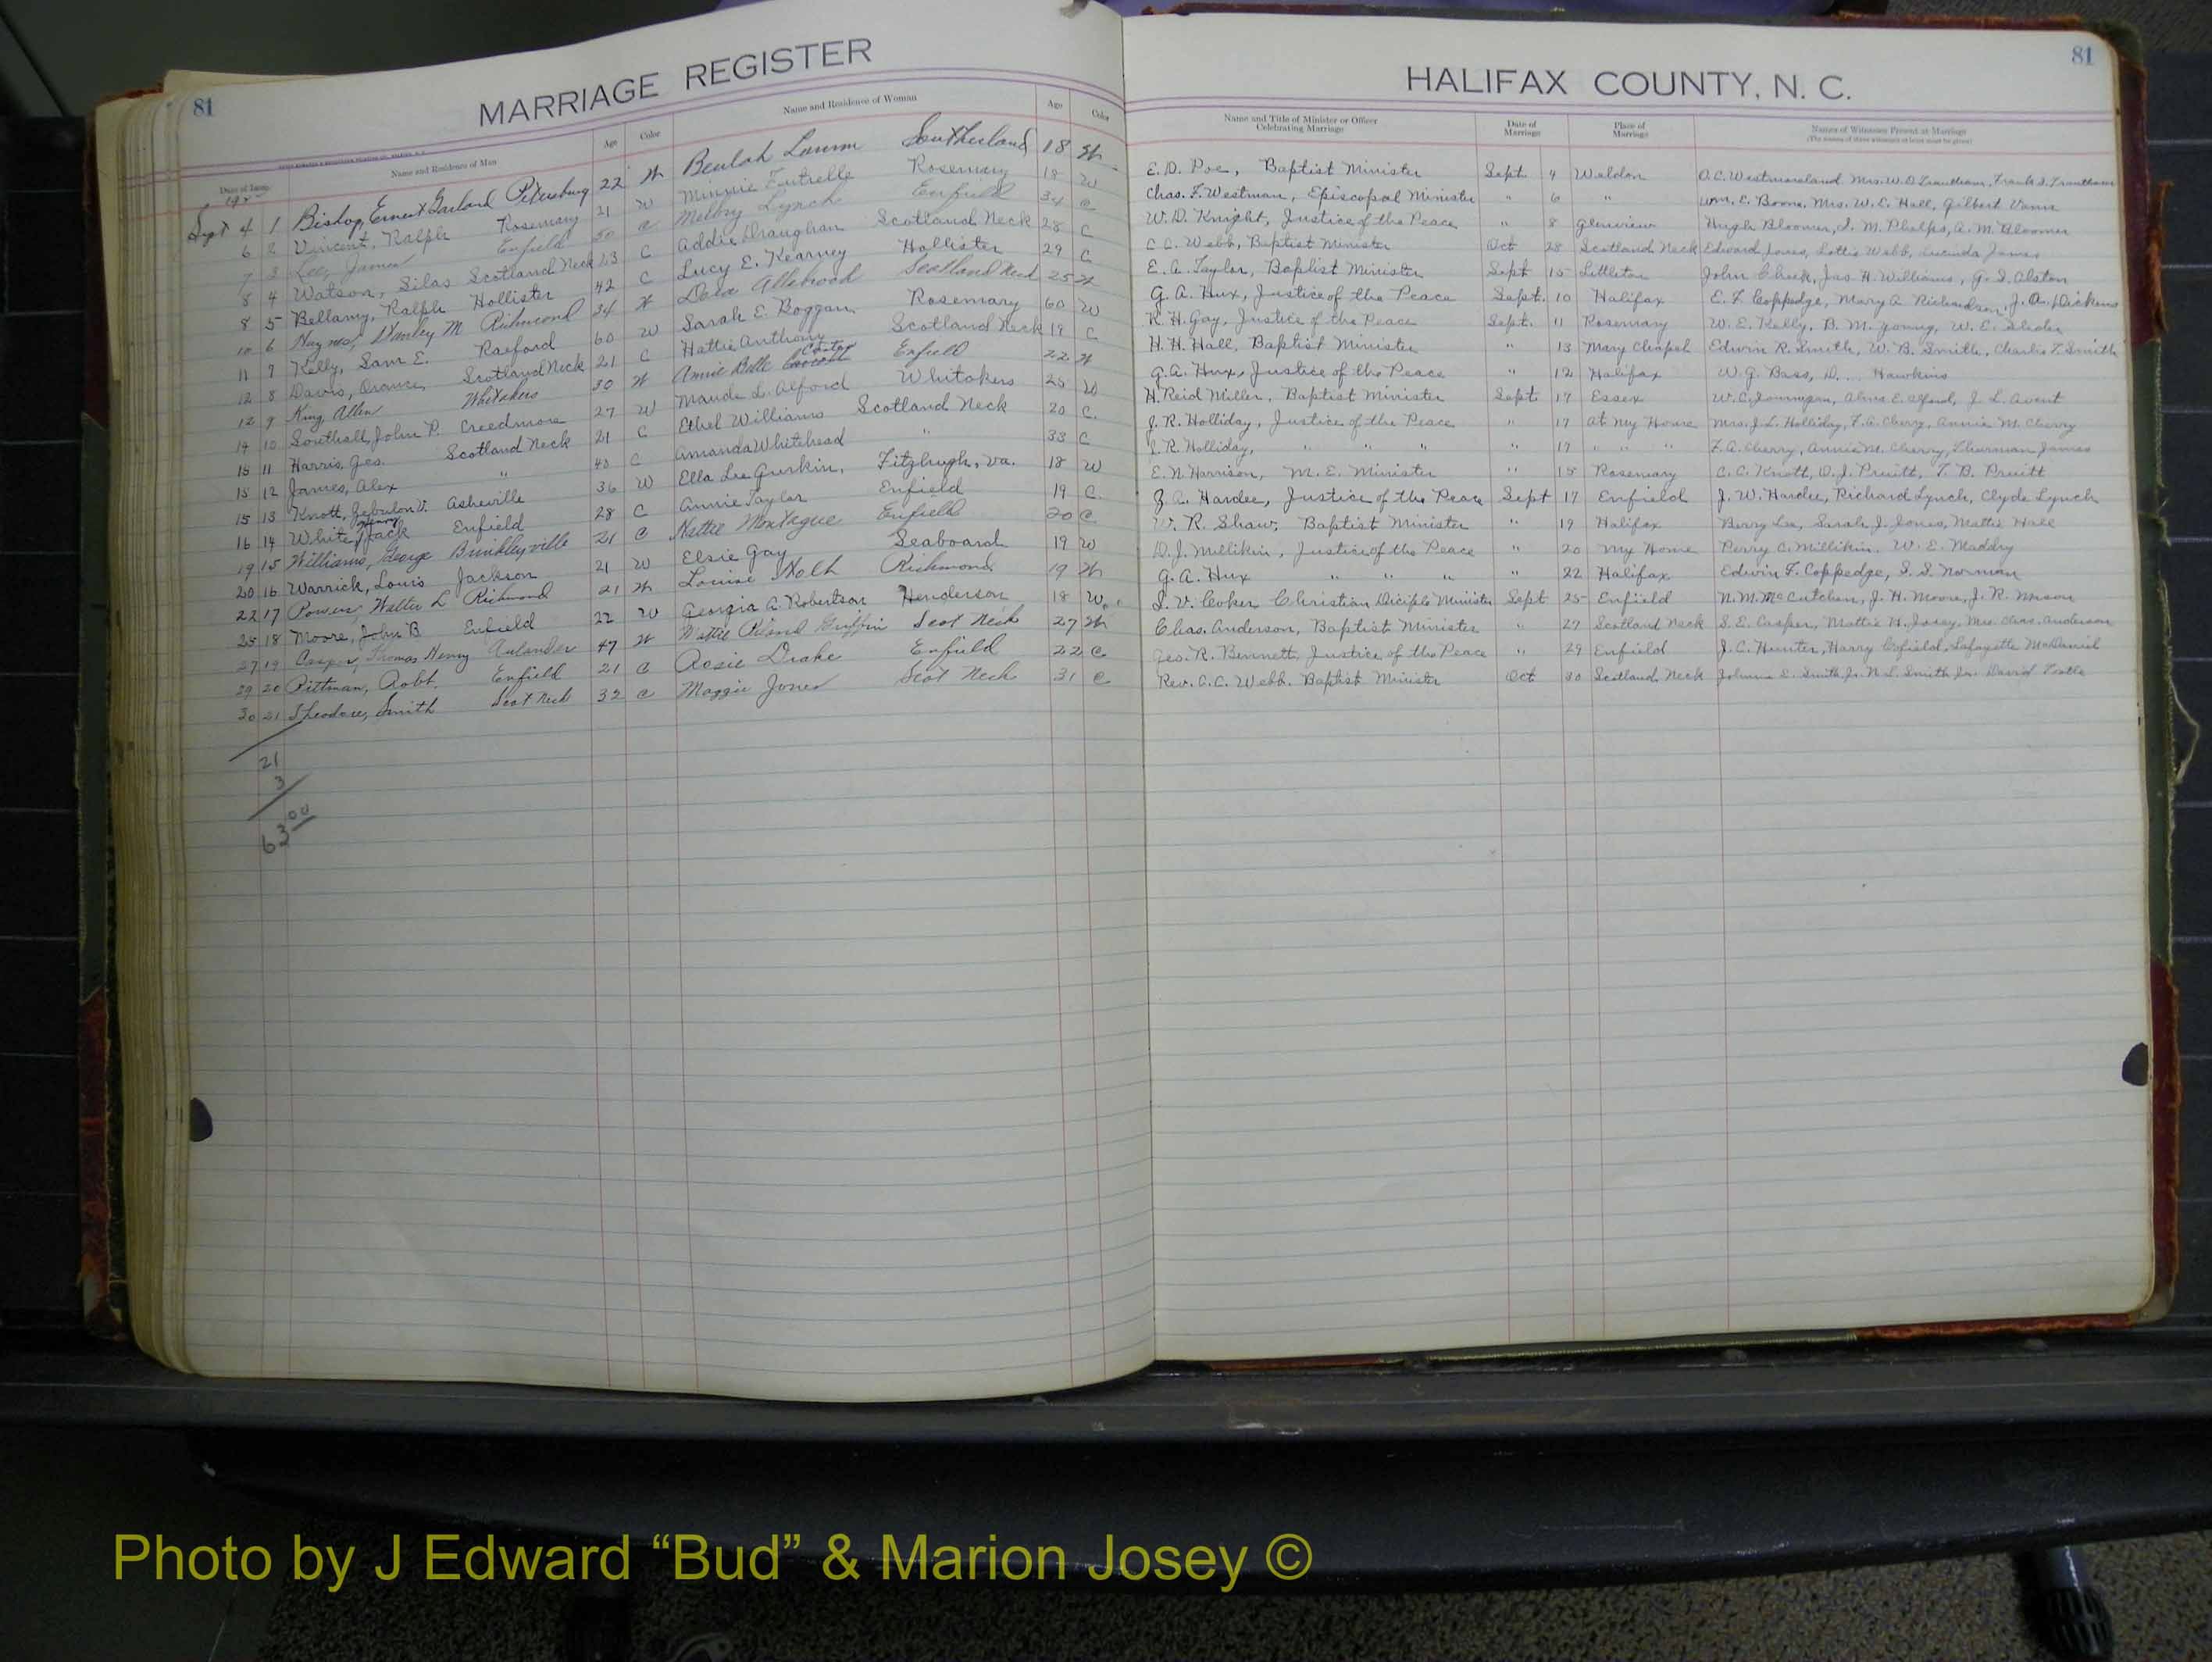 81
MARRIAGE REGISTER
Date of Issue
Name and Residence of Man Age Color Name and Residence of Woman Age Color
Sept 4 1 Bishop, Ernest Garland Petersburg 22 W Beulah Lamm Southerland 18 W
6 2 Vincent, Ralph Rosemary 21 W Minnie Futrelle Rosemary 18 W
7 3 Lee, James Enfield 50 C Lynch Enfield 34 C
8 4 Watson, Silas Scotland Neck 23 C Addie Draughan Scotland Neck 28 C
8 5 Bellamy, Ralph Hollister 42 C Lucy E. Kearney Hollister 29 C
10 6 M Richmond 34 W Dora Scotland Neck 25 W
11 7 Kelly, Sam E. Raeford 60 W Sarah E. Boggan Rosemary 60 W
12 8 Davis, Scotland Neck 21 C Hattie Anthony Scotland Neck 19 C
12 9 King, Allen Whitakers 30 W Annie Belle Enfield 22 W
14 10 Southall, John P. Creedmore 27 W Maude L. Alford Whitakers 25 W
15 11 Harris, Geo. Scotland Neck 21 C Ethel Williams Scotland Neck 20 C.
15 12 James, Alex " 43 C Amanda Whitehead " 33 C
15 13 Knott, Zebulon V. Asheville 36 W Ella Lee Gurkin, Fitzhugh, Va. 18 W
16 14 White, Jack Enfield 28 C Annie Taylor Enfield 19 C.
19 15 Williams, George Brinkleyville 21 C Hattie Montague Enfield 20 C.
20 16 Warrick, Louis Jackson 21 W Elsie Gay Seaboard 19 W
22 17 Power, Walter L Richmond 21 W Louise Richmond 19 W
25 18 Moore, John B Enfield 22 W Georgia A. Robertson Henderson 18 W.
27 19 Casper, Thomas Henry Aulander 47 W Griffin Scot Neck 27 W
29 20 Pittman, Robt. Enfield 21 C Rosie Drake Enfield 22 C
30 21 Theodore, Smith Scot Neck 32 C Maggie Jones Scot Neck 31 C
21
3
63.00
81
HALIFAX COUNTY, N. C.
Name and Title of Minister or Officer Celebrating Marriage Date of Marriage Place of Marriage Names of Witnesses Present at Marriage
E. D. Poe, Baptist Minister Sept 4 Weldon O. C. Westmoreland Mrs. W. D. Trantham, Frank S. Trantham
Chas. F. Westman, Episcopal Minister " 6 " Wm. E. Boone, Mrs. W. E. Hall, Gilbert Vann
W. D. Knight, Justice of the Peace " 8 Glenview Hugh Bloomer, J. M. Phelps, A. M. Bloomer
C. C. Webb, Baptist Minister Oct 28 Scotland Neck Edward Jones, Lottie Webb, Lucinda James
E. A. Taylor, Baptist Minister Sept 15 Littleton John Cheek, Jas. H. Williams, G. S. Alston
G. A. Hux, Justice of the Peace Sept. 10 Halifax E. F. Coppedge, Mary A Richardson, J. A. Dickens
R. H. Gay, Justice of the Peace Sept. 11 Rosemary W. E. Kelly, B. M. Young, W. E.
H. H. Hall, Baptist Minister " 13 Mary Chapel Edwin R. Smith, W. B. Smith, Charlie T. Smith
G. A. Hux, Justice of the Peace " 12 Halifax W. G. Bass, D... Hawkins
H. Reid Miller, Baptist Minister Sept. 17 Essex W. C. Alford, J. L. Avent
J. R. Holliday, Justice of the Peace " 17 At My Home Mrs. J. L. Holliday, F. A. Cherry, Annie M. Cherry
J. R. Holliday, " " " " 17 " " F. A. Cherry, Annie M. Cherry, Thurman James
E. N. Harrison, M. E. Minister " 15 Rosemary C. C. Knott, D. J. Pruitt, T. B. Pruitt
Z. A. Hardee, Justice of the Peace Sept 17 Enfield J. W. Hardee, Richard Lynch, Clyde Lynch
W. R. Shaw, Baptist Minister " 19 Halifax Berry Lee, Sarah J. Jones, Mattie Hall
D. J. Millikin, Justice of the Peace " 20 My Home Perry C. Millikin, W. E. Maddry
G. A. Hux " " " " 22 Halifax Edwin F. Coppedge, S. S. Norman
J. V. Coker Christian Disciple Minister Sept 25 Enfield N. M. McCutchen, J. H. Moore, J. R. Mason
Chas. Anderson, Baptist Minister " 27 Scotland Neck S. E. Casper, Mattie H. Josey, Mrs. Chas. Anderson
Geo. R. Bennett, Justice of the Peace " 29 Enfield J. C. Hunter, Harry Enfield, Lafayette McDaniel
Rev. C. C. Webb, Baptist Minister Oct 30 Scotland Neck Johnnie E. Smith Jr. N. L. Smith Jr. David
Photo by J Edward “Bud” & Marion Josey ©